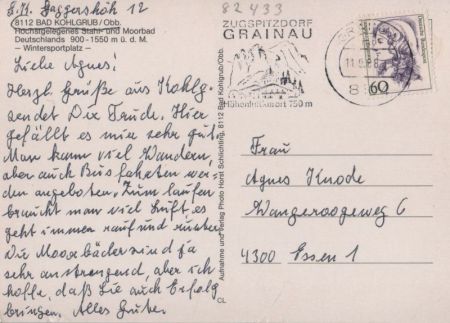 Jaggersköh 12
8112 BAD KOHLGRUB / Obb.
Höchstgelegenes Stahl- und Moorbad
Deutschlands 900 - 1550 m ü. d. M.
– Wintersportplatz –
Liebe Agnes!
Herzl. Grüße aus Kohlg.
sendet Dir Trude. Hier
gefällt es mir sehr gut.
Man kann viel Wandern,
aber auch Bus fahrten wer-
den angeboten. Zum laufen
braucht man viel Luft, es
geht immer rauf und runter.
Die Moorbäder sind ja
sehr anstrengend, aber ich
hoffe, daß sie auch Erfolg
bringen. Alles Gute.
Aufnahme und Verlag Photo Horst Schlichting, 8112 Bad Kohlgrub/Obb.
CL
82 433
ZUGSPITZDORF
GRAINAU
Höhenluftkurort 750 m
60
Frau
Agnes Knode
Wangeroogeweg 6
4300 Essen 1